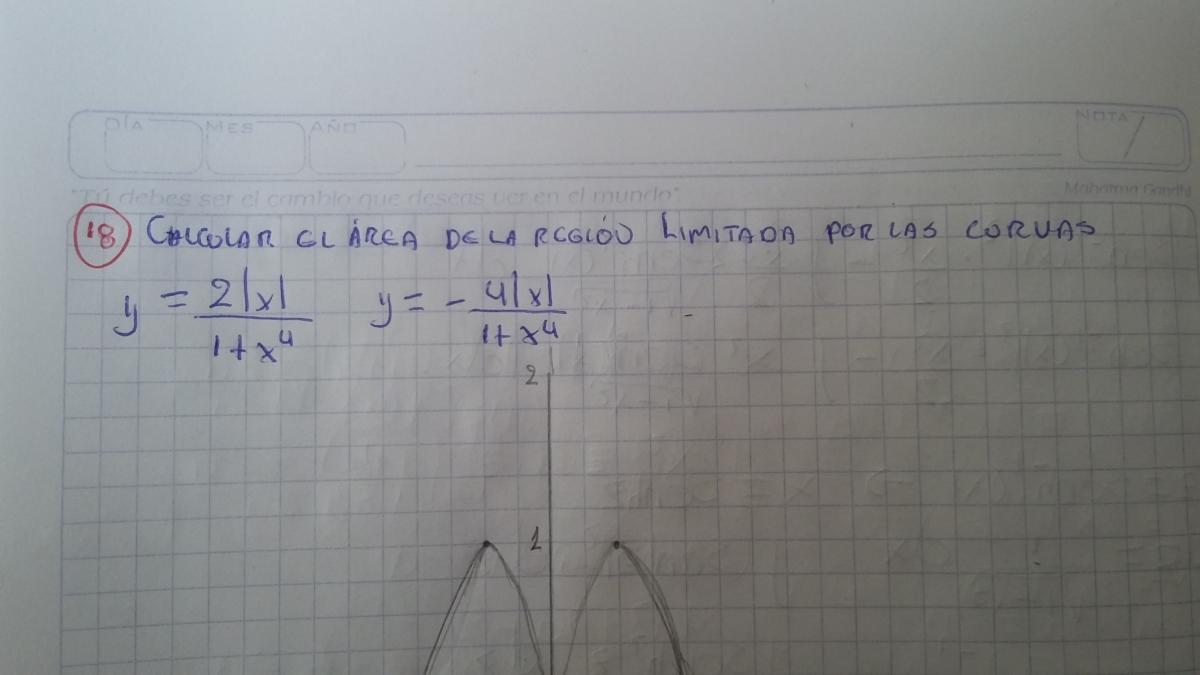 DÍA MES AÑO NOTA
"Tú debes ser el cambio que deseas ver en el mundo". Mahatma Gandhi
18 CALCULAR EL ÁREA DE LA REGIÓN LIMITADA POR LAS CURVAS
y = 2|x| / 1+x⁴ y = - 4|x| / 1+x⁴
2
1